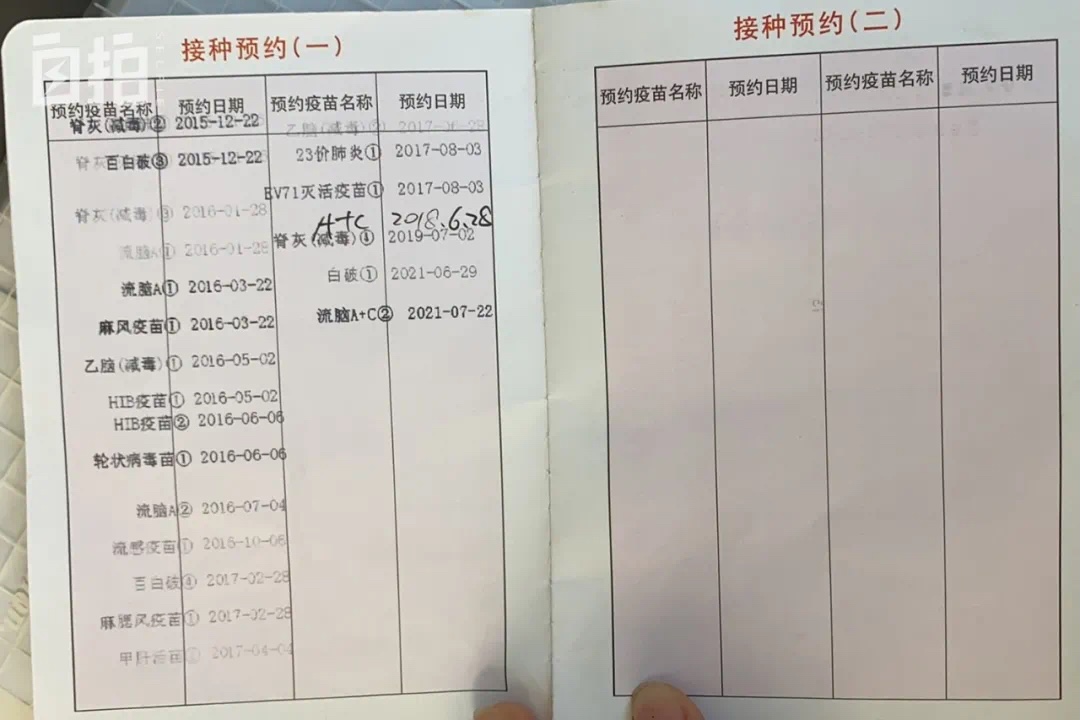 自拍
接种预约(一)
预约疫苗名称 预约日期 预约疫苗名称 预约日期
脊灰(减毒)② 2015-12-22
百白破③ 2015-12-22
脊灰(减毒)③ 2016-01-28
流脑A① 2016-01-28
流脑A① 2016-03-22
麻风疫苗① 2016-03-22
乙脑(减毒)① 2016-05-02
HIB疫苗① 2016-05-02
HIB疫苗② 2016-06-06
轮状病毒苗① 2016-06-06
流脑A② 2016-07-04
流感疫苗① 2016-10-06
百白破④ 2017-02-28
麻腮风疫苗① 2017-02-28
甲肝活苗① 2017-04-04
乙脑(减毒)② 2017-06-28
23价肺炎① 2017-08-03
EV71灭活疫苗① 2017-08-03
A+C 2018.6.28
脊灰(减毒)④ 2019-07-02
白破① 2021-06-29
流脑A+C② 2021-07-22
接种预约(二)
预约疫苗名称 预约日期 预约疫苗名称 预约日期